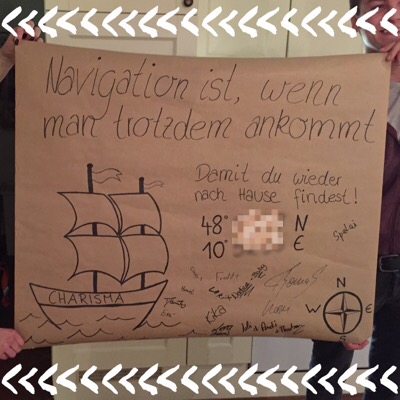 Navigation ist, wenn
man trotzdem ankommt
Damit du wieder
nach Hause findest!
48° N
10° E
CHARISMA
N
W E
S